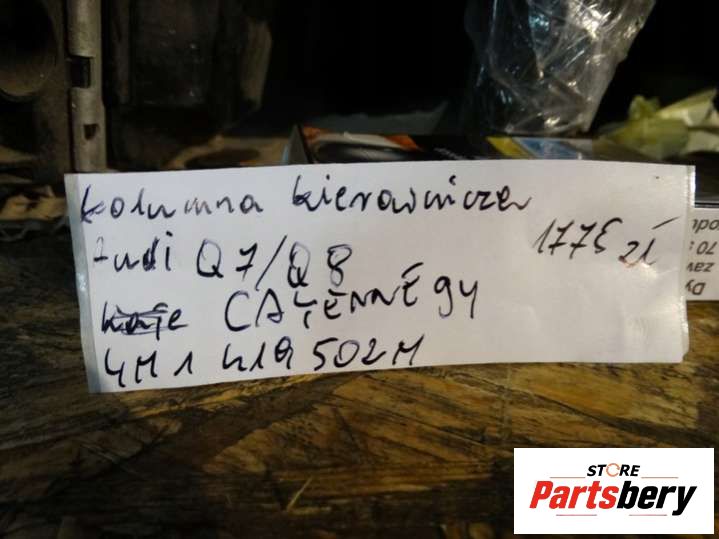 kolumna kierownicza
Audi Q7/Q8 1775 zł
CAYENNE 9Y
4M1 419 502M
70
zaw
Dy
STORE
Partsbery